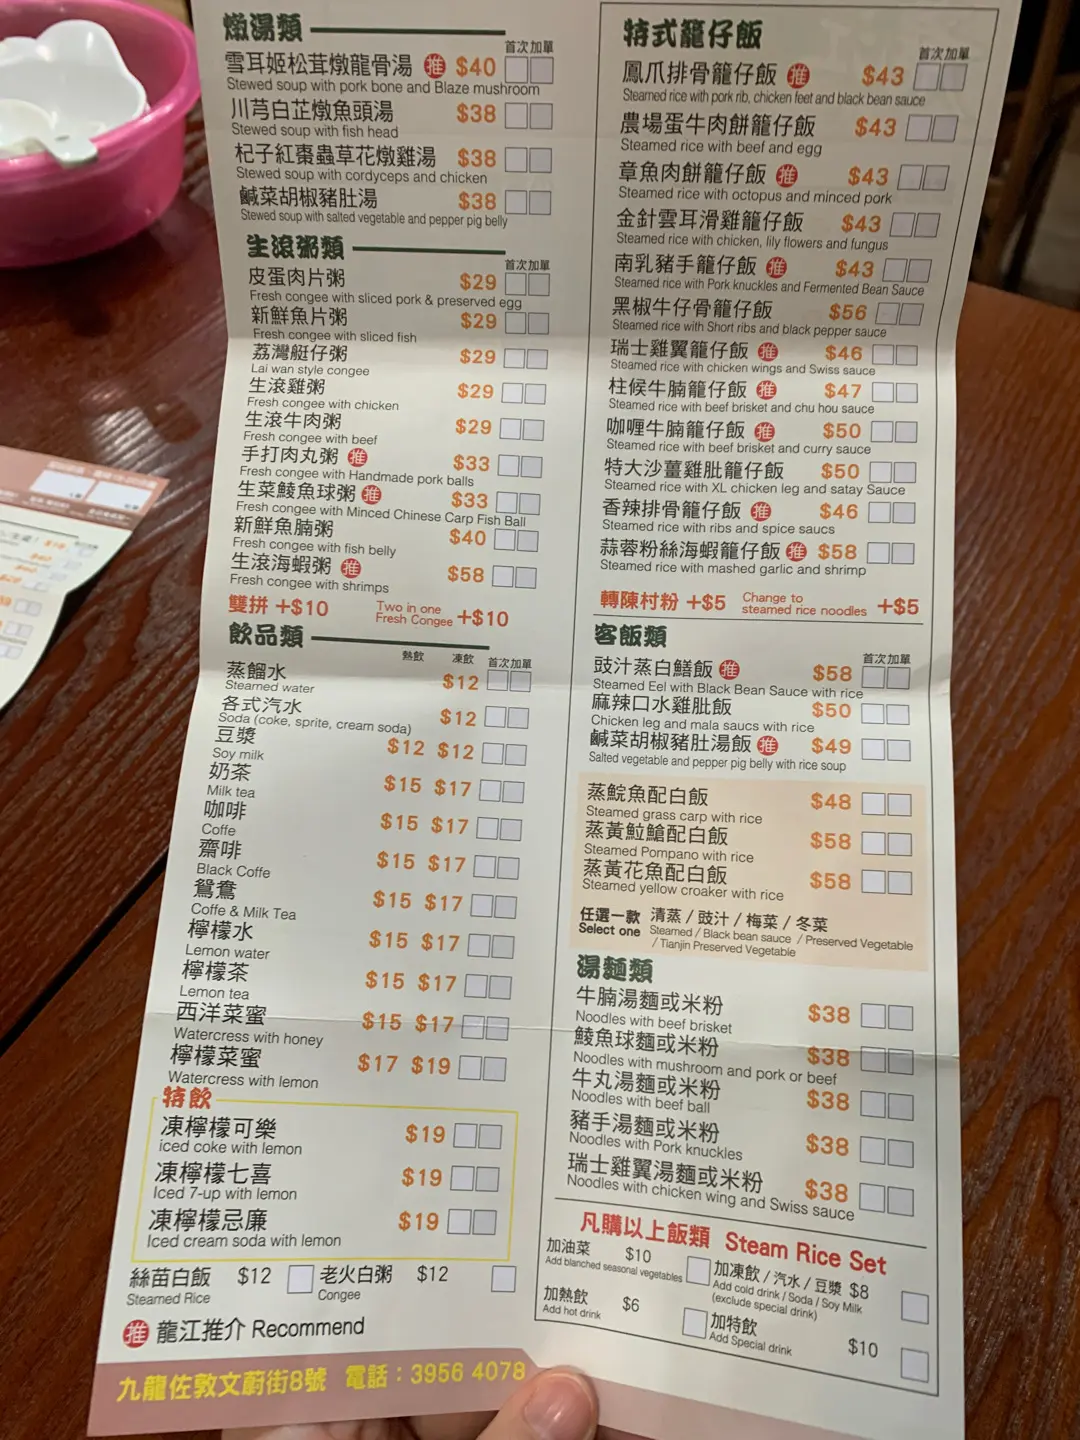 燉湯類
首次加單
雪耳姬松茸燉龍骨湯 推 $40
Stewed soup with pork bone and Blaze mushroom
川芎白芷燉魚頭湯 $38
Stewed soup with fish head
杞子紅棗蟲草花燉雞湯 $38
Stewed soup with cordyceps and chicken
鹹菜胡椒豬肚湯 $38
Stewed soup with salted vegetable and pepper pig belly
生滾粥類
首次加單
皮蛋肉片粥 $29
Fresh congee with sliced pork & preserved egg
新鮮魚片粥 $29
Fresh congee with sliced fish
荔灣艇仔粥 $29
Lai wan style congee
生滾雞粥 $29
Fresh congee with chicken
生滾牛肉粥 $29
Fresh congee with beef
手打肉丸粥 推 $33
Fresh congee with Handmade pork balls
生菜鯪魚球粥 推 $33
Fresh congee with Minced Chinese Carp Fish Ball
新鮮魚腩粥 $40
Fresh congee with fish belly
生滾海蝦粥 推 $58
Fresh congee with shrimps
雙拼 +$10 Two in one Fresh Congee +$10
飲品類
熱飲 凍飲 首次加單
蒸餾水 $12
Steamed water
各式汽水 $12
Soda (coke, sprite, cream soda)
豆漿 $12 $12
Soy milk
奶茶 $15 $17
Milk tea
咖啡 $15 $17
Coffe
齋啡 $15 $17
Black Coffe
鴛鴦 $15 $17
Coffe & Milk Tea
檸檬水 $15 $17
Lemon water
檸檬茶 $15 $17
Lemon tea
西洋菜蜜 $15 $17
Watercress with honey
檸檬菜蜜 $17 $19
Watercress with lemon
特飲
凍檸檬可樂 $19
iced coke with lemon
凍檸檬七喜 $19
Iced 7-up with lemon
凍檸檬忌廉 $19
Iced cream soda with lemon
絲苗白飯 $12 老火白粥 $12
Steamed Rice Congee
推 龍江推介 Recommend
九龍佐敦文蔚街8號 電話：3956 4078
特式籠仔飯
首次加單
鳳爪排骨籠仔飯 推 $43
Steamed rice with pork rib, chicken feet and black bean sauce
農場蛋牛肉餅籠仔飯 $43
Steamed rice with beef and egg
章魚肉餅籠仔飯 推 $43
Steamed rice with octopus and minced pork
金針雲耳滑雞籠仔飯 $43
Steamed rice with chicken, lily flowers and fungus
南乳豬手籠仔飯 推 $43
Steamed rice with Pork knuckles and Fermented Bean Sauce
黑椒牛仔骨籠仔飯 $56
Steamed rice with Short ribs and black pepper sauce
瑞士雞翼籠仔飯 推 $46
Steamed rice with chicken wings and Swiss sauce
柱候牛腩籠仔飯 推 $47
Steamed rice with beef brisket and chu hou sauce
咖喱牛腩籠仔飯 推 $50
Steamed rice with beef brisket and curry sauce
特大沙薑雞肶籠仔飯 $50
Steamed rice with XL chicken leg and satay Sauce
香辣排骨籠仔飯 推 $46
Steamed rice with ribs and spice saucs
蒜蓉粉絲海蝦籠仔飯 推 $58
Steamed rice with mashed garlic and shrimp
轉陳村粉 +$5 Change to steamed rice noodles +$5
客飯類
首次加單
豉汁蒸白鱔飯 推 $58
Steamed Eel with Black Bean Sauce with rice
麻辣口水雞肶飯 $50
Chicken leg and mala saucs with rice
鹹菜胡椒豬肚湯飯 推 $49
Salted vegetable and pepper pig belly with rice soup
蒸鯇魚配白飯 $48
Steamed grass carp with rice
蒸黃魛鯧配白飯 $58
Steamed Pompano with rice
蒸黃花魚配白飯 $58
Steamed yellow croaker with rice
任選一款 清蒸 / 豉汁 / 梅菜 / 冬菜
Select one Steamed / Black bean sauce / Preserved Vegetable
/ Tianjin Preserved Vegetable
湯麵類
牛腩湯麵或米粉 $38
Noodles with beef brisket
鯪魚球麵或米粉 $38
Noodles with mushroom and pork or beef
牛丸湯麵或米粉 $38
Noodles with beef ball
豬手湯麵或米粉 $38
Noodles with Pork knuckles
瑞士雞翼湯麵或米粉 $38
Noodles with chicken wing and Swiss sauce
凡購以上飯類 Steam Rice Set
加油菜 $10
Add blanched seasonal vegetables
加凍飲 / 汽水 / 豆漿 $8
Add cold drink / Soda / Soy Milk
(exclude special drink)
加熱飲 $6
Add hot drink
加特飲 $10
Add Special drink